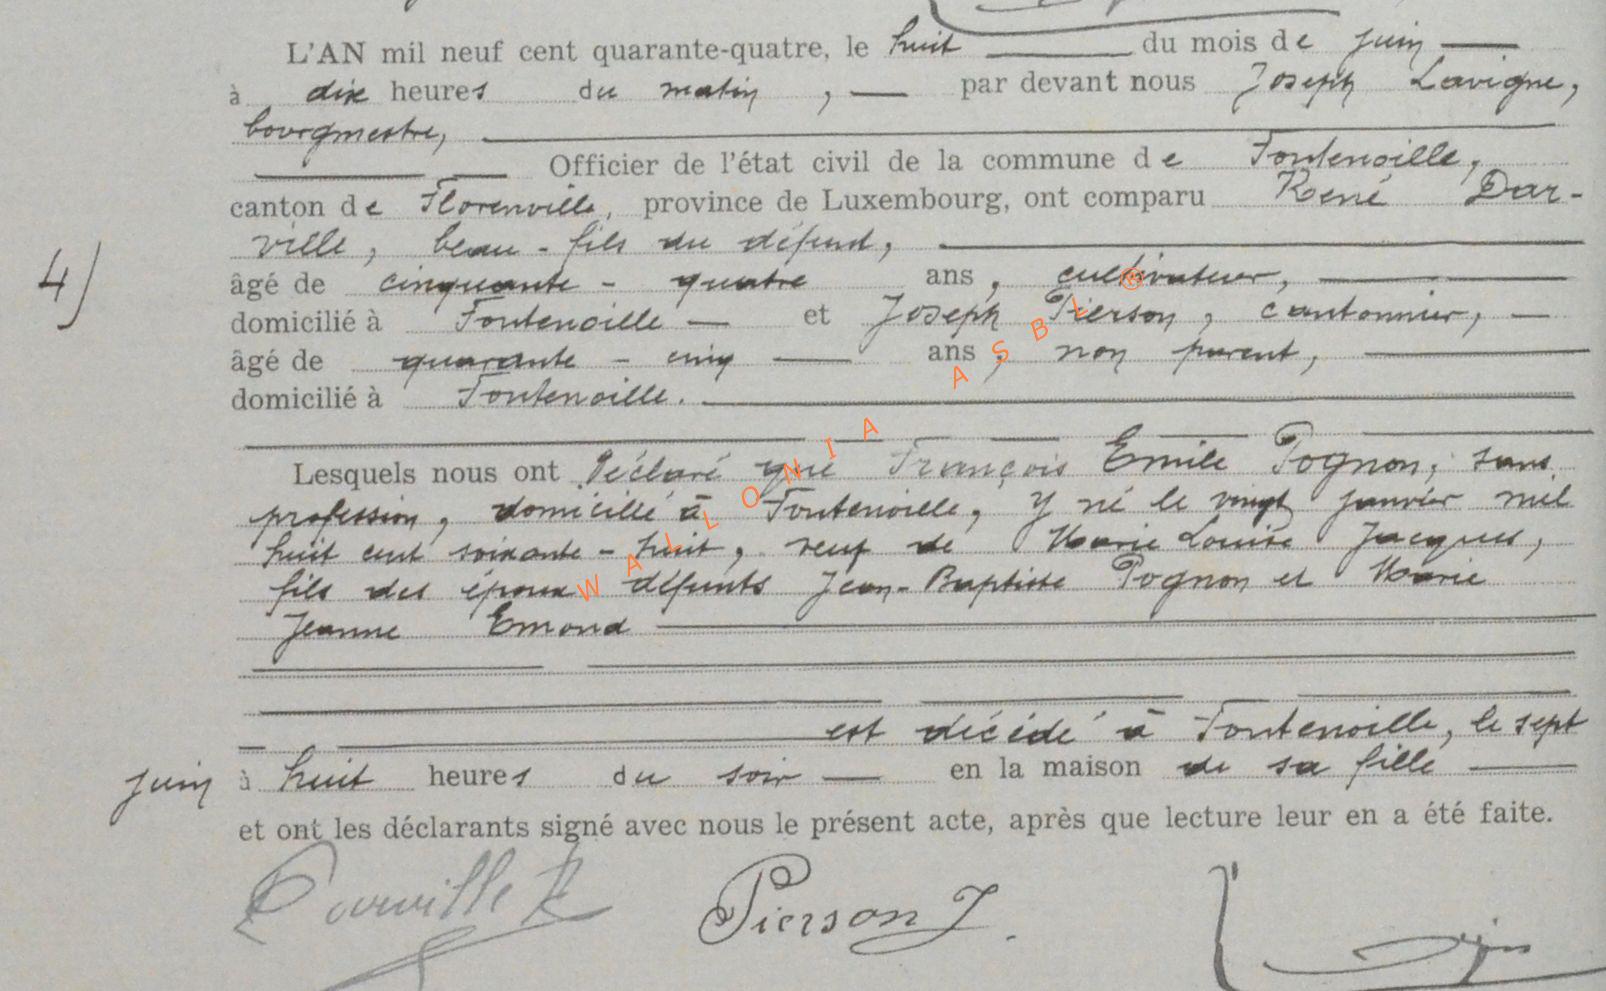 L'AN mil neuf cent quarante-quatre, le huit du mois de juin
à dix heures du matin, par devant nous Joseph Lavigne,
bourgmestre,
Officier de l'état civil de la commune de Fontenoille,
canton de Florenville, province de Luxembourg, ont comparu René Dar-
ville, beau-fils du défunt,
4)
âgé de cinquante-quatre ans, cultivateur,
domicilié à Fontenoille et Joseph Pierson, cantonnier,
âgé de quarante-cinq ans, non parent,
domicilié à Fontenoille.
Lesquels nous ont déclaré que François Emile Pognon, sans
profession, domicilié à Fontenoille, y né le vingt janvier mil
huit cent soixante-huit, veuf de Marie Louise Jacques,
fils des époux défunts Jean-Baptiste Pognon et Marie
Jeanne Emond
est décédé à Fontenoille, le sept
juin à huit heures du soir en la maison de sa fille
et ont les déclarants signé avec nous le présent acte, après que lecture leur en a été faite.
Darville R Pierson J.
WALLONIA ASBL ®